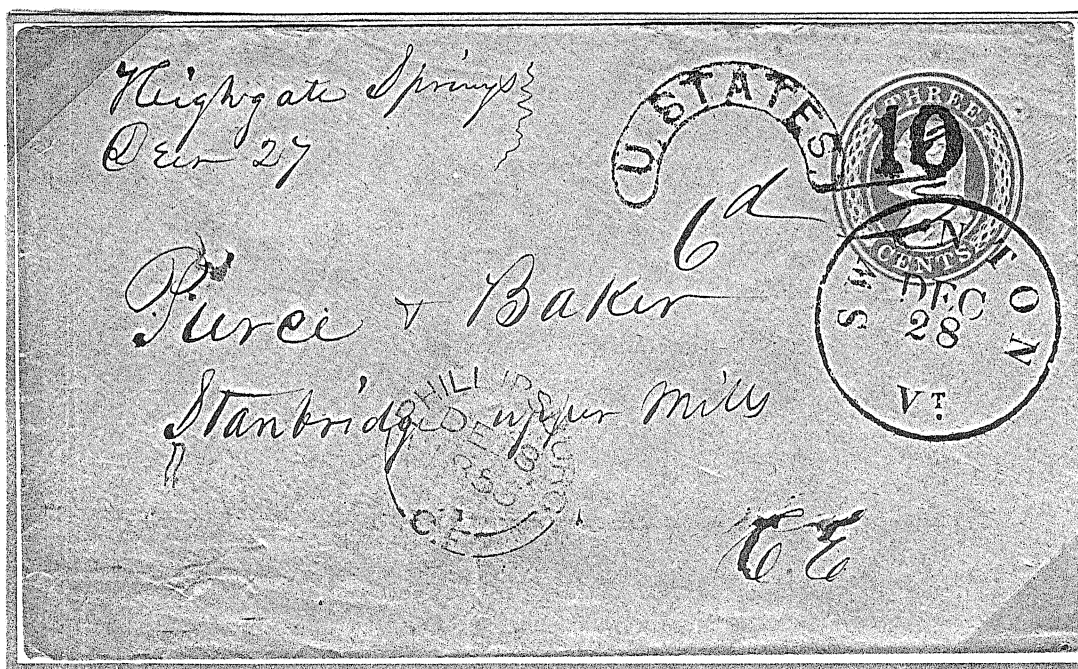 Heighgate Springs
Decr 27
U. STATES
THREE
10
CENTS
6d
SWANTON
DEC
28
VT.
Pierce + Baker
Stanbridge upper Mills
PHILLIPSBURG
DE
185
C.E.
C.E